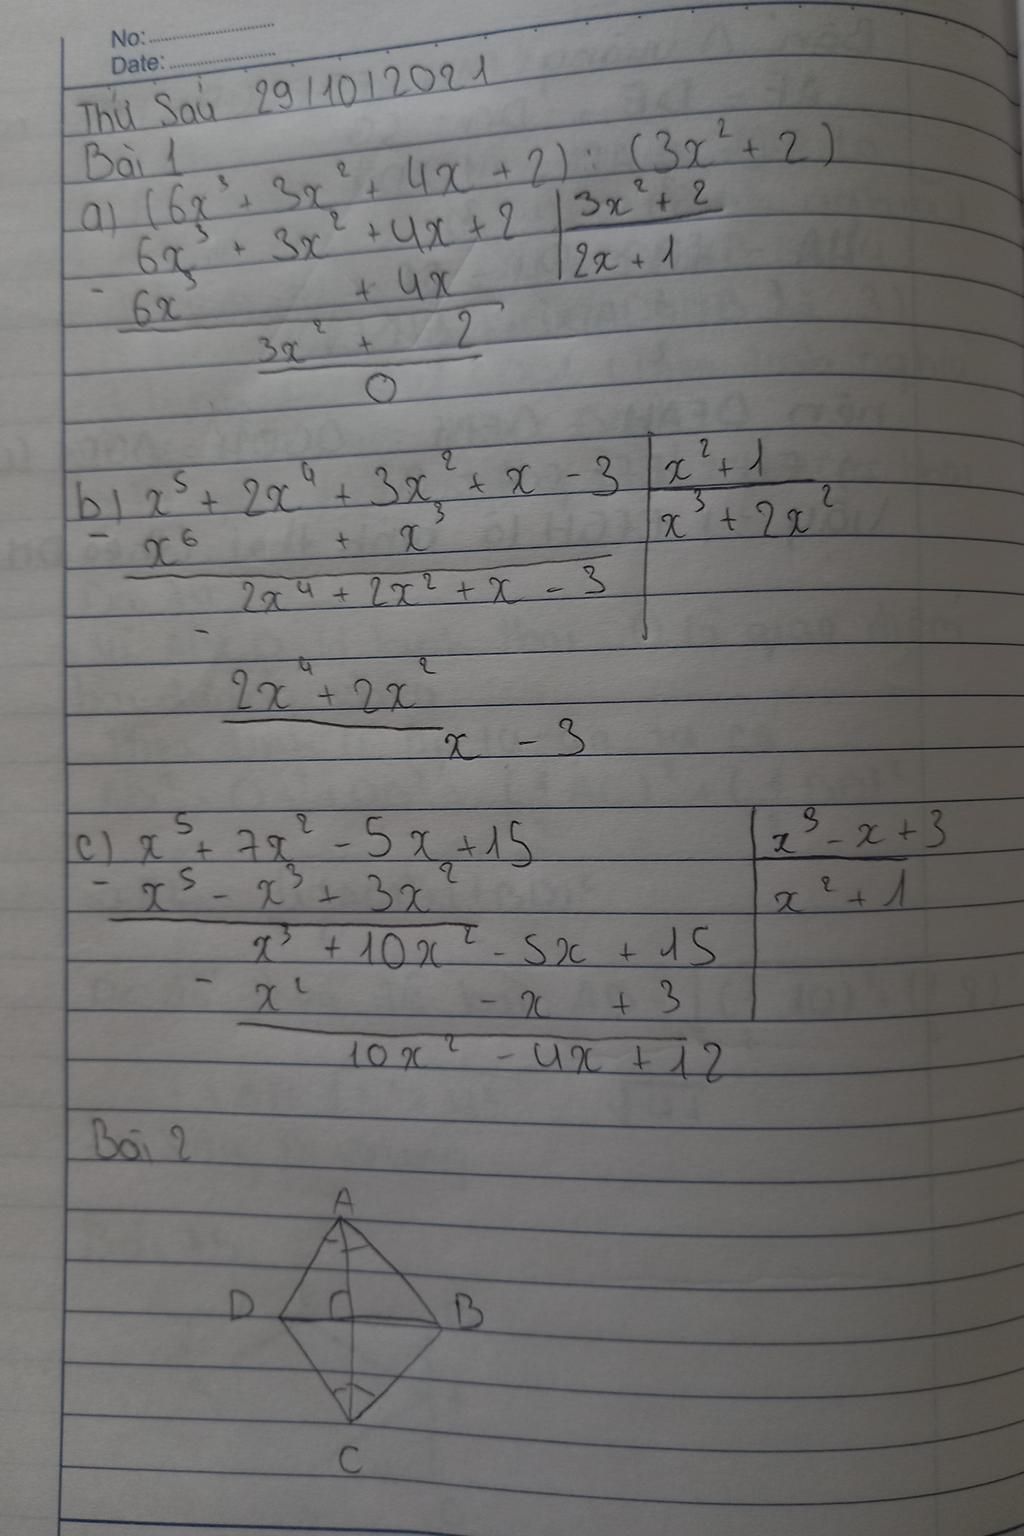 No:
Date:
Thứ Sáu 29/10/2021
Bài 1
a) (6x³ + 3x² + 4x + 2) : (3x² + 2)
6x³ + 3x² + 4x + 2 | 3x² + 2
- 6x³ + 4x | 2x + 1
3x² + 2
0
b) x⁵ + 2x⁴ + 3x² + x - 3 | x² + 1
- x⁶ + x³ | x³ + 2x²
2x⁴ + 2x² + x - 3
-
2x⁴ + 2x²
x - 3
c) x⁵ + 7x² - 5x + 15 | x³ - x + 3
- x⁵ - x³ + 3x² | x² + 1
x³ + 10x² - 5x + 15
- x² - x + 3
10x² - 4x + 12
Bài 2
A
D B
C